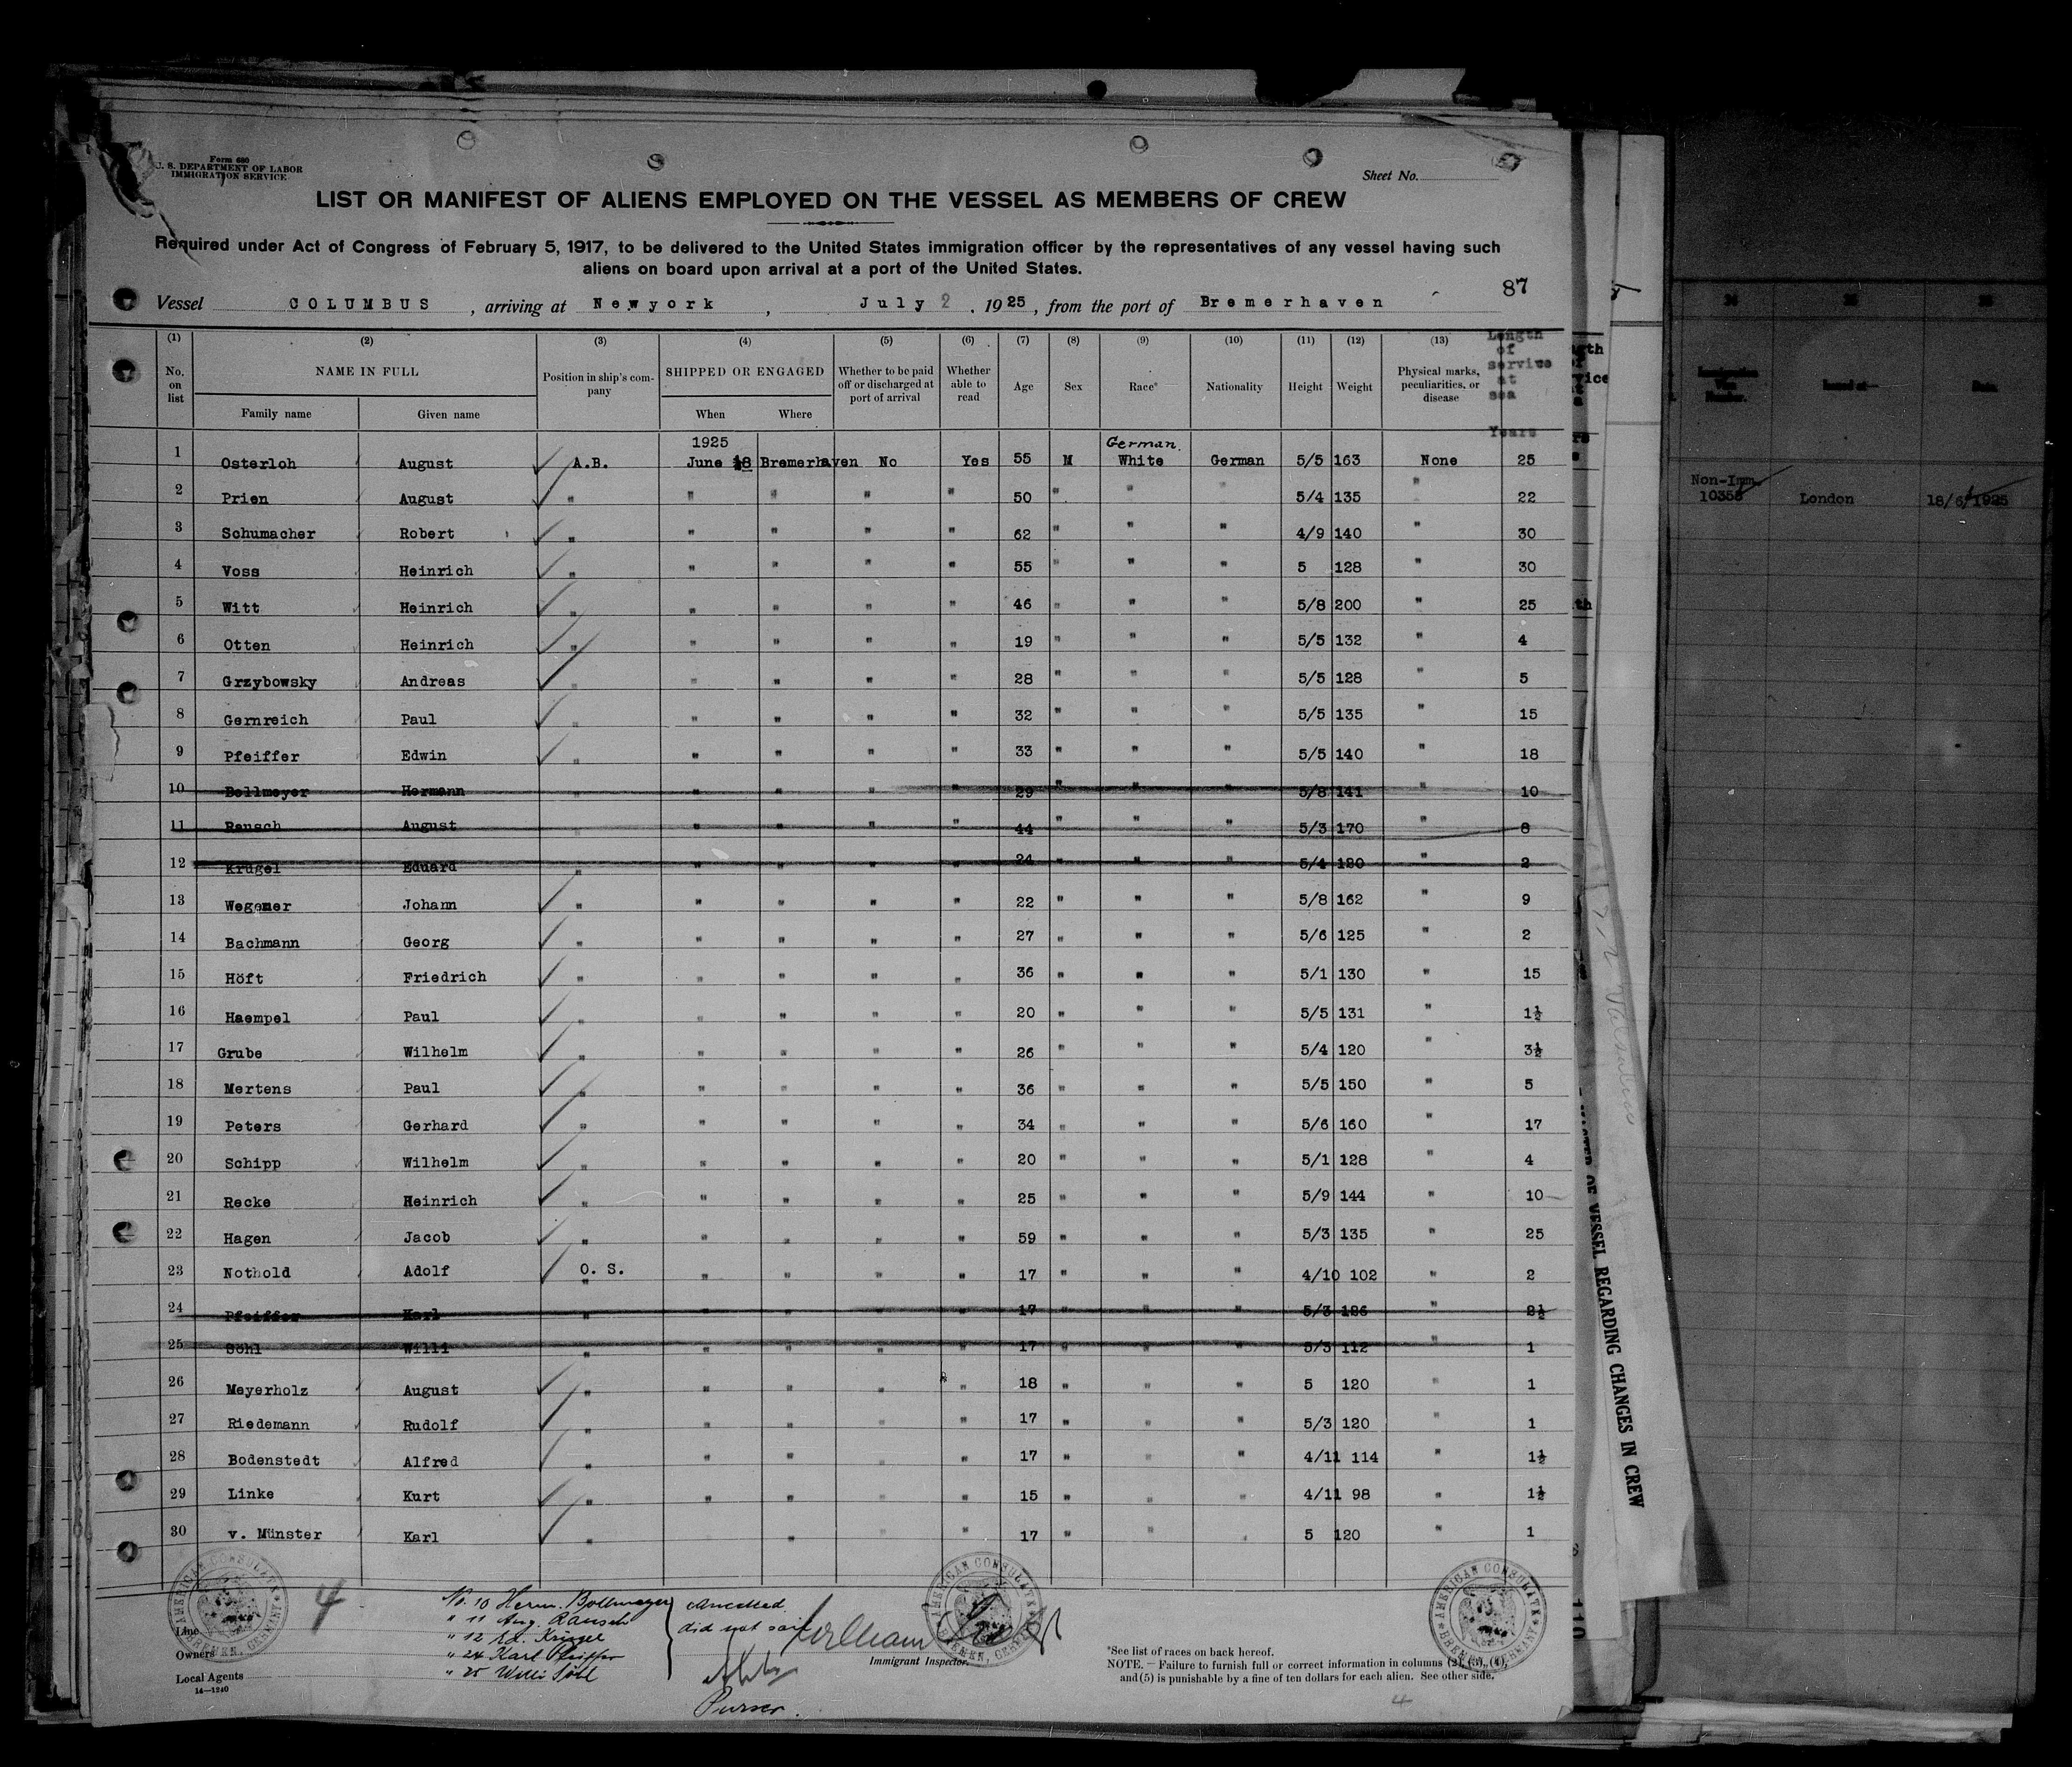 Form 680
U. S. DEPARTMENT OF LABOR
IMMIGRATION SERVICE
Sheet No.
LIST OR MANIFEST OF ALIENS EMPLOYED ON THE VESSEL AS MEMBERS OF CREW
Required under Act of Congress of February 5, 1917, to be delivered to the United States immigration officer by the representatives of any vessel having such
aliens on board upon arrival at a port of the United States.
87
Vessel COLUMBUS, arriving at Newyork, July 2. 1925, from the port of Bremerhaven
(1) (2) (3) (4) (5) (6) (7) (8) (9) (10) (11) (12) (13)
No. on list NAME IN FULL Family name Given name Position in ship's company SHIPPED OR ENGAGED When Where Whether to be paid off or discharged at port of arrival Whether able to read Age Sex Race* Nationality Height Weight Physical marks, peculiarities, or disease Length of service at sea Years
1925 German
1 Osterloh August A.B. June 18 Bremerhaven No Yes 55 M White German 5/5 163 None 25
2 Prien August " " " " " 50 " " " 5/4 135 " 22
3 Schumacher Robert " " " " " 62 " " " 4/9 140 " 30
4 Voss Heinrich " " " " " 55 " " " 5 128 " 30
5 Witt Heinrich " " " " " 46 " " " 5/8 200 " 25
6 Otten Heinrich " " " " " 19 " " " 5/5 132 " 4
7 Grzybowsky Andreas " " " " " 28 " " " 5/5 128 " 5
8 Gernreich Paul " " " " " 32 " " " 5/5 135 " 15
9 Pfeiffer Edwin " " " " " 33 " " " 5/5 140 " 18
10 Bollmeyer Hermann " " " " " 29 " " " 5/8 141 " 10
11 Rausch August " " " " " 44 " " " 5/3 170 " 8
12 Krügel Eduard " " " " " 24 " " " 5/4 120 " 2
13 Wegener Johann " " " " " 22 " " " 5/8 162 " 9
14 Bachmann Georg " " " " " 27 " " " 5/6 125 " 2
15 Höft Friedrich " " " " " 36 " " " 5/1 130 " 15
16 Haempel Paul " " " " " 20 " " " 5/5 131 " 1½
17 Grube Wilhelm " " " " " 26 " " " 5/4 120 " 3½
18 Mertens Paul " " " " " 36 " " " 5/5 150 " 5
19 Peters Gerhard " " " " " 34 " " " 5/6 160 " 17
20 Schipp Wilhelm " " " " " 20 " " " 5/1 128 " 4
21 Recke Heinrich " " " " " 25 " " " 5/9 144 " 10
22 Hagen Jacob " " " " " 59 " " " 5/3 135 " 25
23 Nothold Adolf O. S. " " " " 17 " " " 4/10 102 " 2
24 Pfeiffer Karl " " " " " 17 " " " 5/3 126 " 2½
25 Söhl Willi " " " " " 17 " " " 5/3 112 " 1
26 Meyerholz August " " " " " 18 " " " 5 120 " 1
27 Riedemann Rudolf " " " " " 17 " " " 5/3 120 " 1
28 Bodenstedt Alfred " " " " " 17 " " " 4/11 114 " 1½
29 Linke Kurt " " " " " 15 " " " 4/11 98 " 1½
30 v. Münster Karl " " " " 17 " " " 5 120 " 1
4
No. 10 Herm. Bollmeyer
" 11 Aug. Rausch
" 12 Ed. Krügel
" 24 Karl Pfeiffer
" 25 Willi Söhl
cancelled
did not sail
Purser.
Line
Owners
Local Agents
14—1240
Immigrant Inspector.
AMERICAN CONSULATE BREMEN, GERMANY
AMERICAN CONSULATE BREMEN, GERMANY
AMERICAN CONSULATE BREMEN, GERMANY
*See list of races on back hereof.
NOTE.—Failure to furnish full or correct information in columns (2), (3), (4),
and (5) is punishable by a fine of ten dollars for each alien. See other side.
4
OF VESSEL REGARDING CHANGES IN CREW
110
Number. Issued at Date.
Non-Imm.
10355 London 18/6/1925